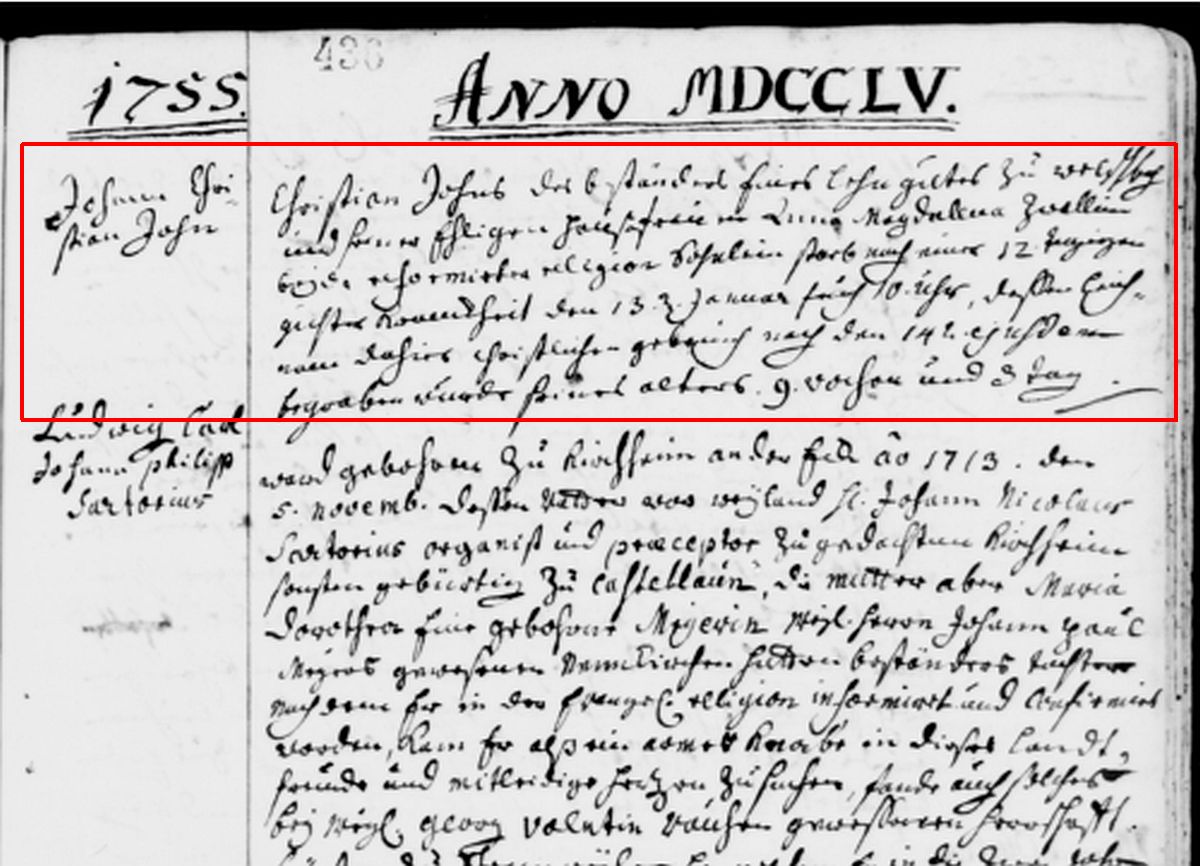 436
1755.
ANNO MDCCLV.
Johann Chri-
stian John
Christian Johns des beständers eines Lehn gutes zu
und seiner Ehligen Haußfrauen Anna Magdalena
beyde reformirter religion Söhnlein starb nach einer 12 tägigen
gichter Kranckheit den 13. Januar früh 10. Uhr, dessen Leich-
nam dahier christlichen gebrauch nach den 14t. ejusdem
begraben wurde seines alters. 9. wochen und 3 tag.
Ludwig Carl
Johann Philipp
Sartorius
ward gebohren zu Kirchheim an der Eck ao 1713. den
5. Novemb. dessen Vatter war weyland H. Johann Nicolaus
Sartorius organist und præceptor zu gedachtem Kirchheim
sonsten gebürtig zu Castellaun, die mutter aber Maria
Dorothea Eine gebohrne Meyerin Weyl. Herrn Johann Paul
Meyers gewesenen beständers tochter
nach dem Er in der Evangel. religion informiret und Confirmiret
worden, kam Er alß ein armer Knabe in dieses Landt,
freunde und mitleidige hertzen zu suchen, fande auch solches
bey Weyl. Georg Valentin gewessenen Herrschafft.